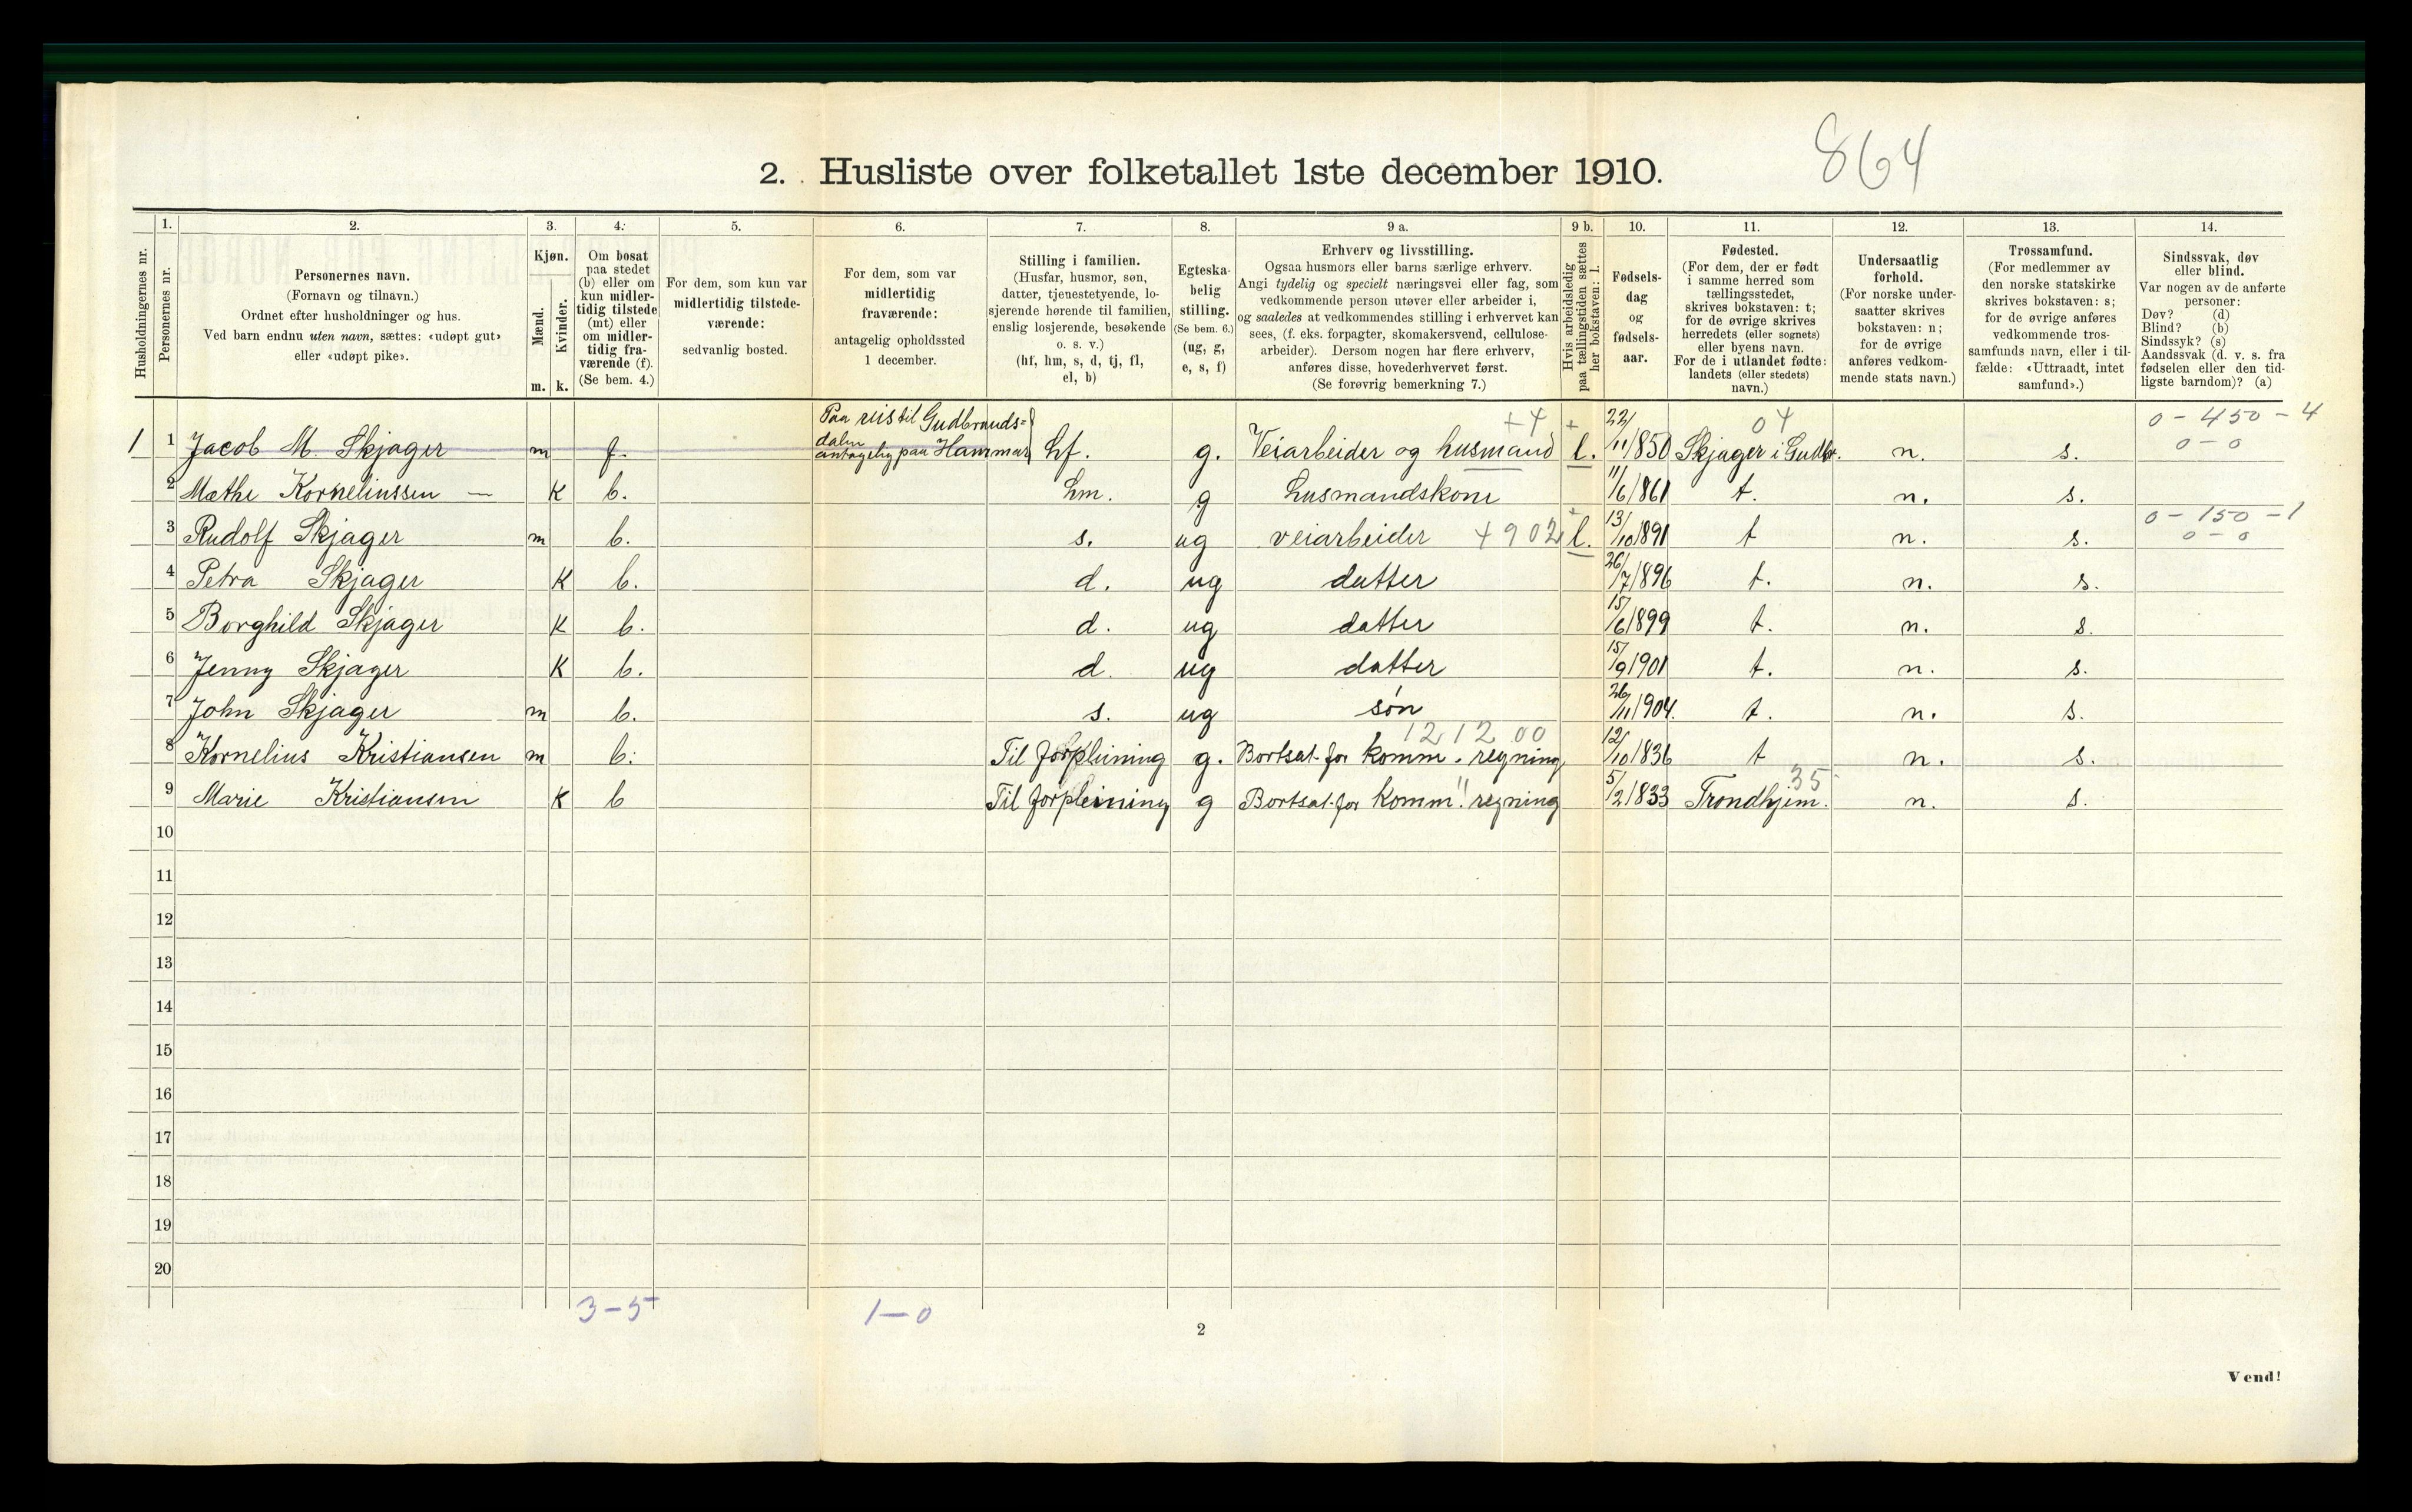 864
2. Husliste over folketallet 1ste december 1910.
Husholdningernes nr.
1.
Personernes nr.
2.
Personernes navn.
(Fornavn og tilnavn.)
Ordnet efter husholdninger og hus.
Ved barn endnu uten navn, sættes: «udøpt gut»
eller «udøpt pike».
3.
Kjøn.
Mænd.
Kvinder.
m. k.
4.
Om bosat
paa stedet
(b) eller om
kun midler-
tidig tilstede
(mt) eller
om midler-
tidig fra-
værende (f).
(Se bem. 4.)
5.
For dem, som kun var
midlertidig tilstede-
værende:
sedvanlig bosted.
6.
For dem, som var
midlertidig
fraværende:
antagelig opholdssted
1 december.
7.
Stilling i familien.
(Husfar, husmor, søn,
datter, tjenestetyende, lo-
sjerende hørende til familien,
enslig losjerende, besøkende
o. s. v.)
(hf, hm, s, d, tj, fl,
el, b)
8.
Egteska-
belig
stilling.
(Se bem. 6.)
(ug, g,
e, s, f)
9 a.
Erhverv og livsstilling.
Ogsaa husmors eller barns særlige erhverv.
Angi tydelig og specielt næringsvei eller fag, som
vedkommende person utøver eller arbeider i,
og saaledes at vedkommendes stilling i erhvervet kan
sees, (f. eks. forpagter, skomakersvend, cellulose-
arbeider). Dersom nogen har flere erhverv,
anføres disse, hovederhvervet først.
(Se forøvrig bemerkning 7.)
9 b.
Hvis arbeidsledig
paa tællingstiden sættes
her bokstaven: l.
10.
Fødsels-
dag
og
fødsels-
aar.
11.
Fødested.
(For dem, der er født
i samme herred som
tællingsstedet,
skrives bokstaven: t;
for de øvrige skrives
herredets (eller sognets)
eller byens navn.
For de i utlandet fødte:
landets (eller stedets)
navn.)
12.
Undersaatlig
forhold.
(For norske under-
saatter skrives
bokstaven: n;
for de øvrige
anføres vedkom-
mende stats navn.)
13.
Trossamfund.
(For medlemmer av
den norske statskirke
skrives bokstaven: s;
for de øvrige anføres
vedkommende tros-
samfunds navn, eller i til-
fælde: «Uttraadt, intet
samfund».)
14.
Sindssvak, døv
eller blind.
Var nogen av de anførte
personer:
Døv? (d)
Blind? (b)
Sindssyk? (s)
Aandssvak (d. v. s. fra
fødselen eller den tid-
ligste barndom)? (a)
Paa reis til Gudbrands=
dalen
antagelig paa Hammar
+4 + 04 0-450-4
0-0
1 1 Jacob M. Skjager m f. hf. g. Veiarbeider og husmand l. 22/11 1850 Skjager i Gudbr. n. s.
2 Mathe Kornelinssen — K b. hm. g husmandskone 11/6 1861 t. n. s.
3 Rudolf Skjager m b. s. ug veiarbeider +902 l. 13/10 1891 t n. s. 0-150-1
0-0
4 Petra Skjager K b. d. ug datter 26/7 1896 t. n. s.
5 Borghild Skjager K b. d. ug datter 15/6 1899 t. n. s.
6 Jenny Skjager K b. d. ug datter 15/9 1901 t. n. s.
7 John Skjager m b. s. ug søn 26/11 1904. t. n. s.
121200
8 Kornelius Kristiansen m b. Til forpleining g. Bortsat for komm. regning 12/10 1836 t n. s.
35
9 Marie Kristiansen K b Til forpleining g Bortsat for Komm. regning 5/2 1833 Trondhjem. n. s.
10
11
12
13
14
15
16
17
18
19
20
3-5 1-0
2
Vend!